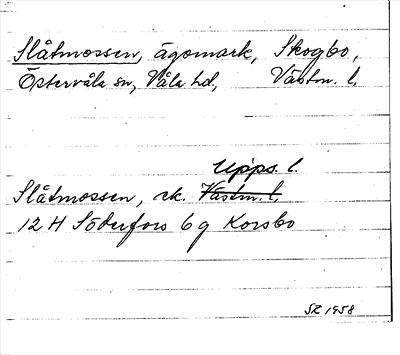 Slåtmossen, ägomark, Skogbo,
Östervåla sn, Våla hd, Västm. l.
Upps. l.
Slåtmossen, ek. Västm. l.
12 H Söderfors 6 g Korsbo
SZ 1958